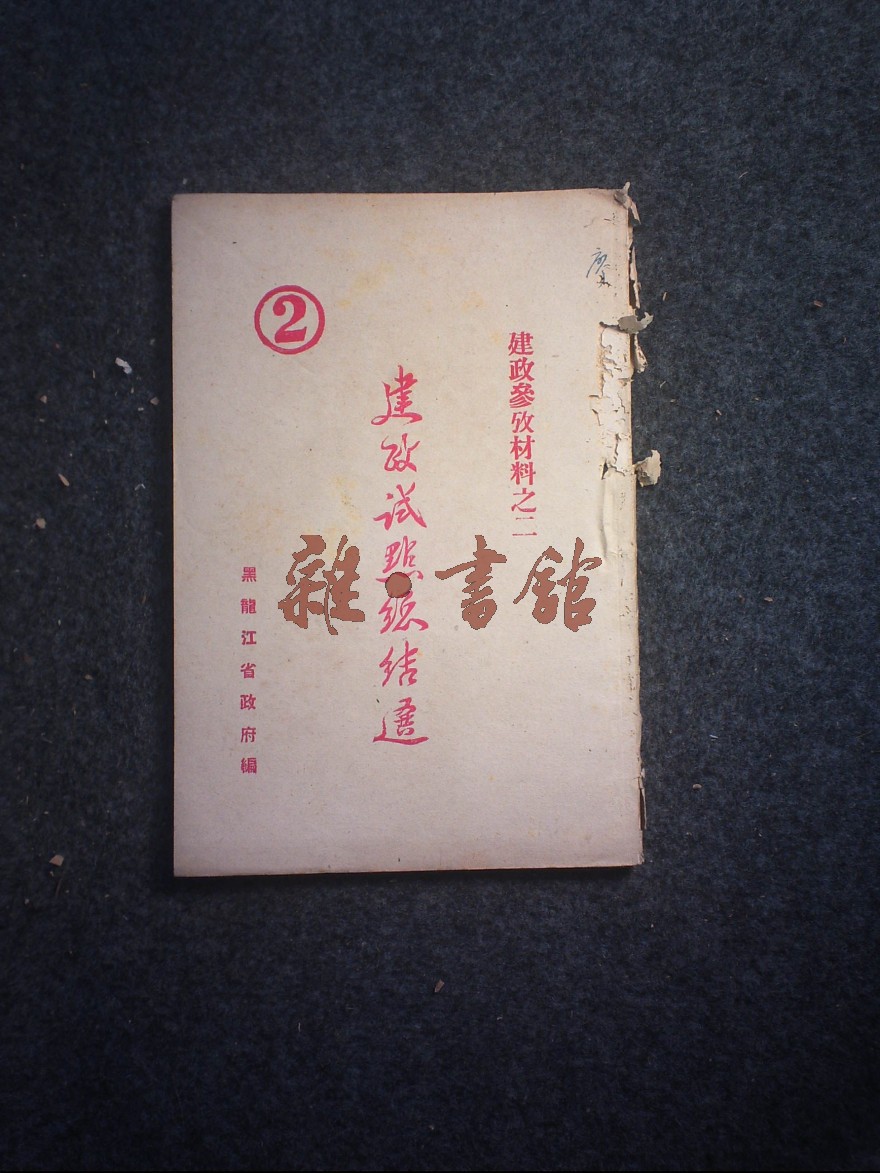 建政參攷材料之二
②
建政試點總結選
黑龍江省政府編
雜·書館